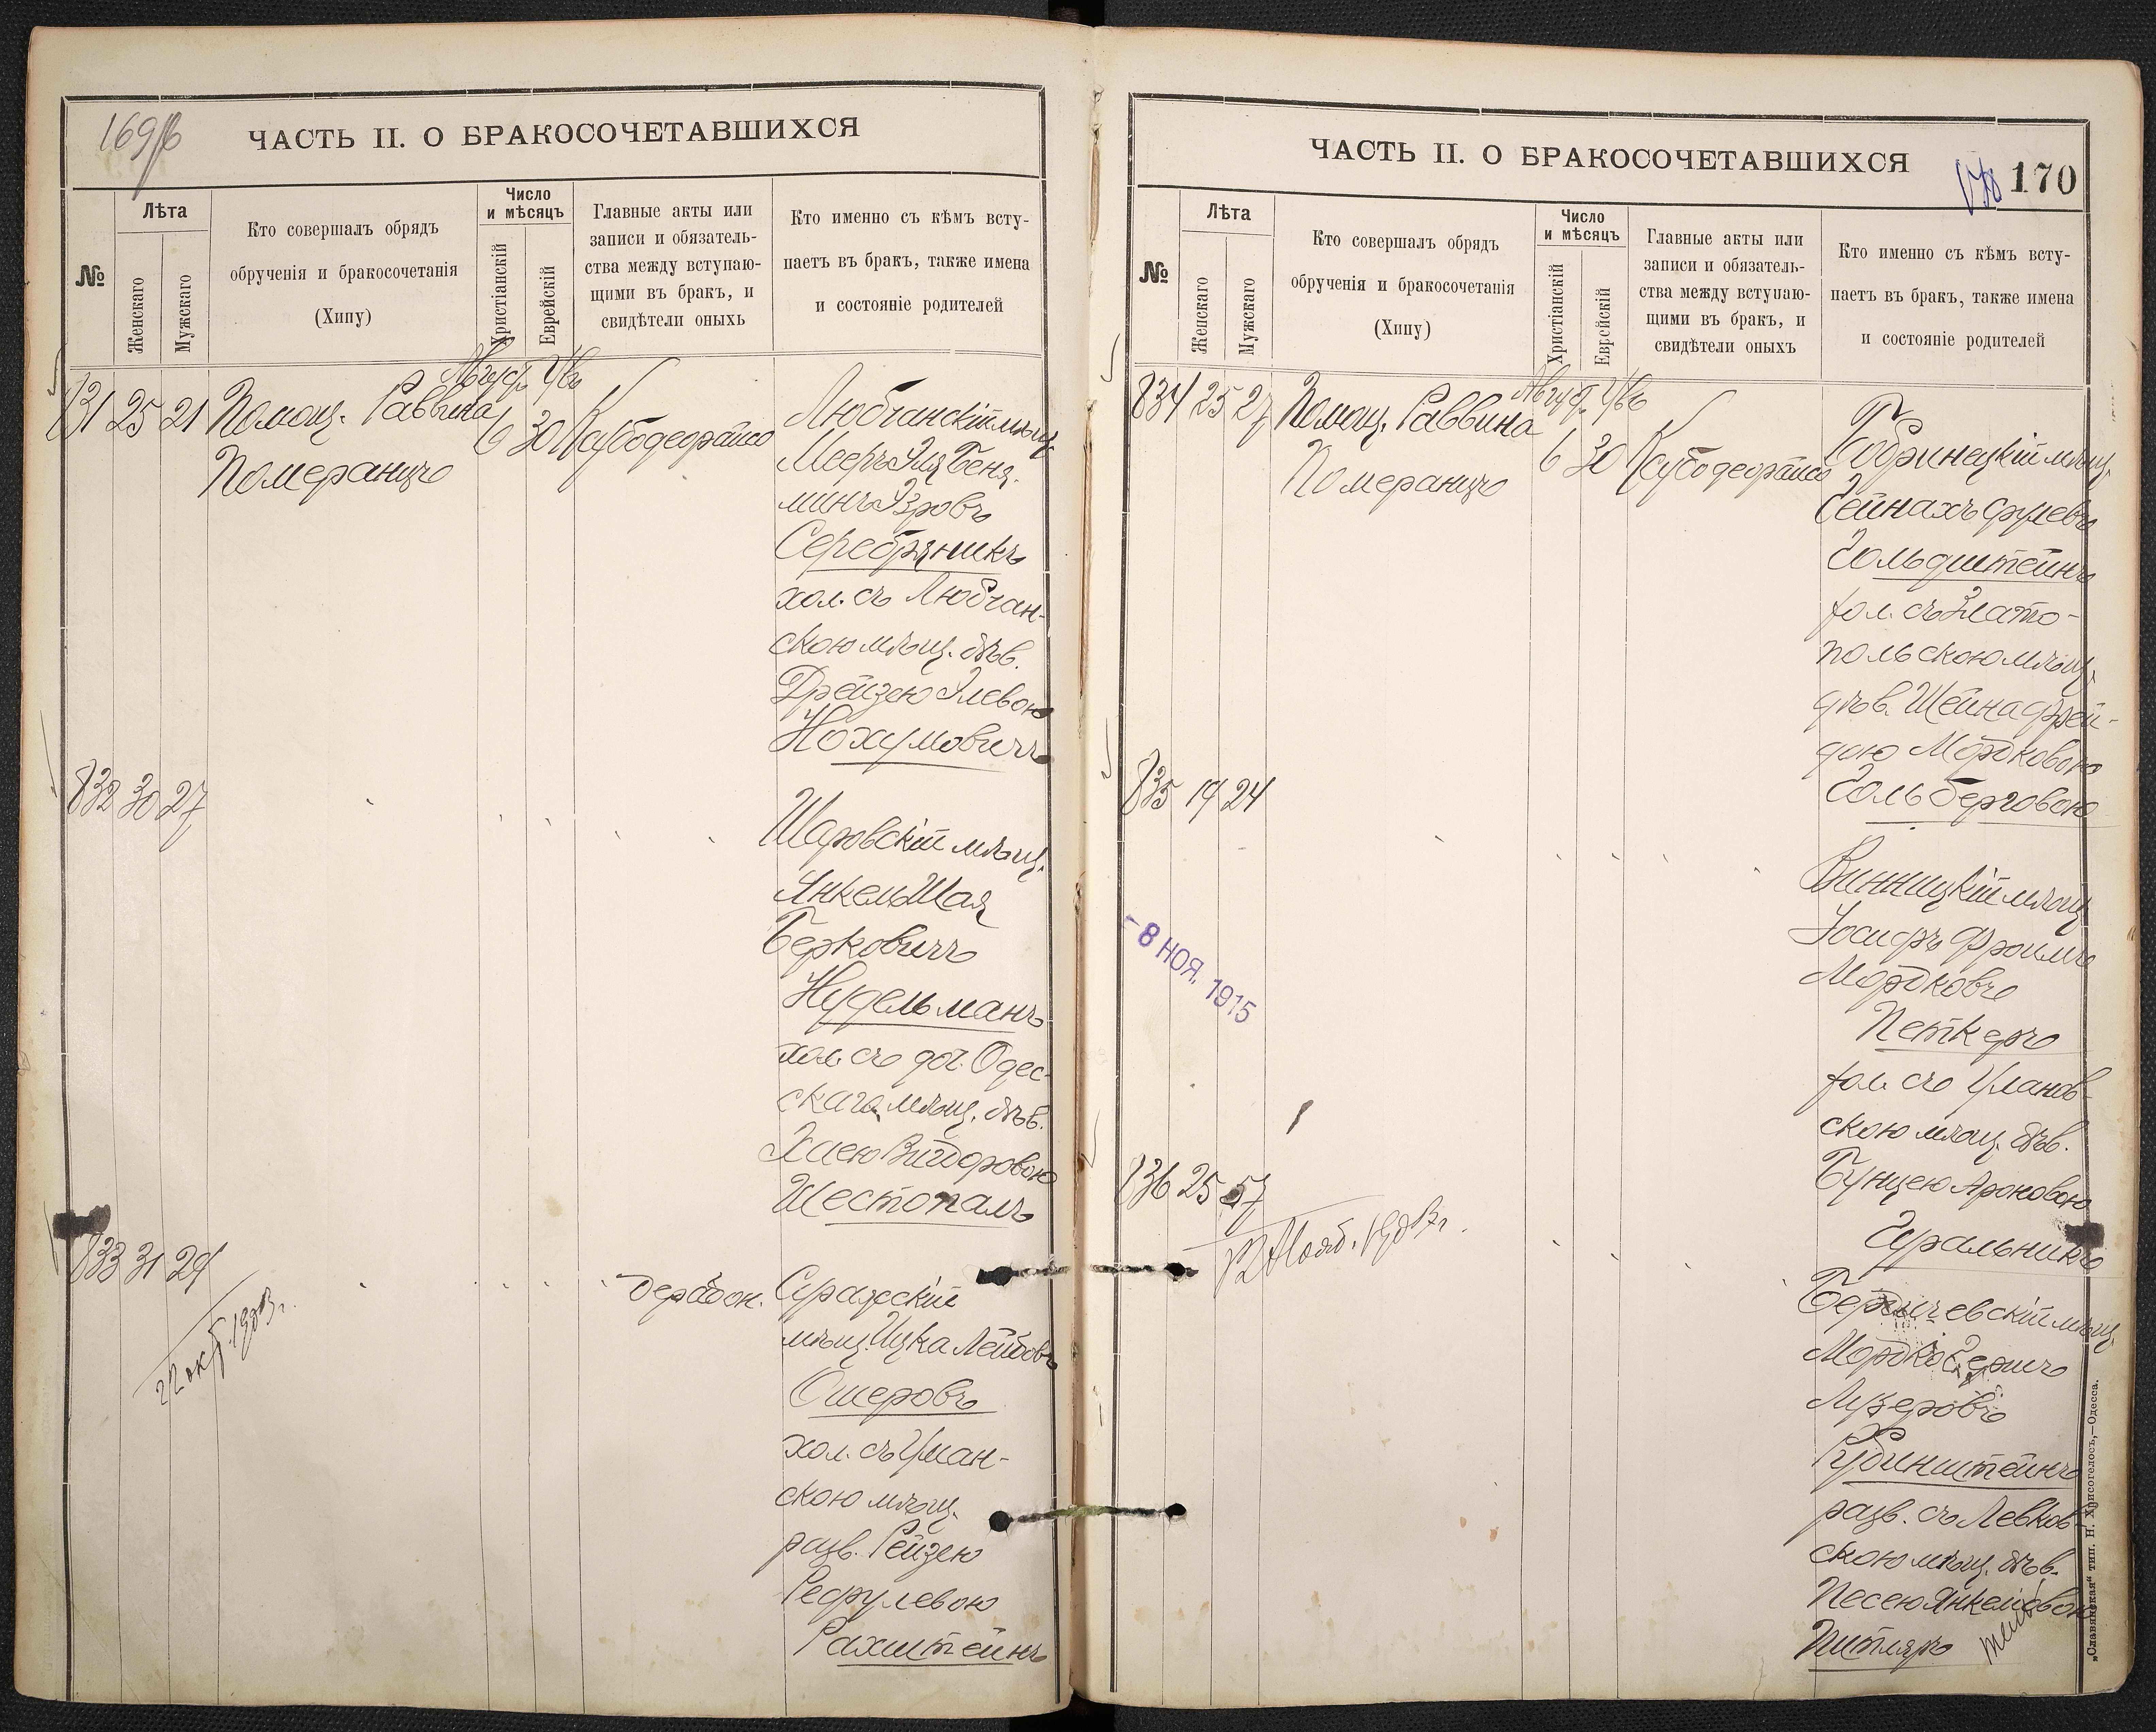 169/6
ЧАСТЬ II. О БРАКОСОЧЕТАВШИХСЯ
№
Лѣта
Женскаго
Мужскаго
Кто совершалъ обрядъ
обрученія и бракосочетанія
(Хипу)
Число
и мѣсяцъ
Христіанскій
Еврейскій
Главные акты или
записи и обязатель-
ства между вступаю-
щими въ бракъ, и
свидѣтели оныхъ
Кто именно съ кѣмъ всту-
паетъ въ бракъ, также имена
и состояніе родителей
831 25 21 Помощ. Раввина
Померанцъ
6 30
Любчанскій мѣщ.
Мееръ Эля Беня-
минъ Эзровъ
Серебряникъ
хол. съ Любчан-
скою мѣщ. дѣв.
Дрейзею Элевою
Нохумовичъ
832 30 27
Шаровскій мѣщ.
Янкель Шая
Берковичъ
Нудельманъ
хол. съ доч. Одес-
скаго мѣщ. дѣв.
Хаею Вигдоровою
Шестопалъ
833 31 29
22 окт. 1903 г.
Суражскій
мѣщ. Ицка Лейбовъ
Ошеровъ
хол. съ Уман-
скою мѣщ.
разв. Рейзею
Рефулевою
Рахштейнъ
ЧАСТЬ II. О БРАКОСОЧЕТАВШИХСЯ
170
№
Лѣта
Женскаго
Мужскаго
Кто совершалъ обрядъ
обрученія и бракосочетанія
(Хипу)
Число
и мѣсяцъ
Христіанскій
Еврейскій
Главные акты или
записи и обязатель-
ства между вступаю-
щими въ бракъ, и
свидѣтели оныхъ
Кто именно съ кѣмъ всту-
паетъ въ бракъ, также имена
и состояніе родителей
834 25 27 Помощ. Раввина
Померанцъ
6 30
Бобринецкій мѣщ.
Гейнахъ Срулевъ
Гольдштейнъ
хол. съ Злато-
польскою мѣщ.
дѣв. Шейна Фрей-
дою Мордковою
Гольберговою
835 19 24
Винницкій мѣщ.
Іосифъ Фроимъ
Мордковъ
Петкеръ
хол. съ Уланов-
скою мѣщ. дѣв.
Бунцею Ароновою
Гуральникъ
- 8 НОЯ. 1915
836 25 57
12 Нояб. 1903 г.
Бердичевскій мѣщ.
Мордко Гершъ
Лузеровъ
Рубинштейнъ
разв. съ Левков-
скою мѣщ. дѣв.
Песею Янкелевою
Питляръ
„Славянская“ тип. Н. Хрисогелосъ,—Одесса.